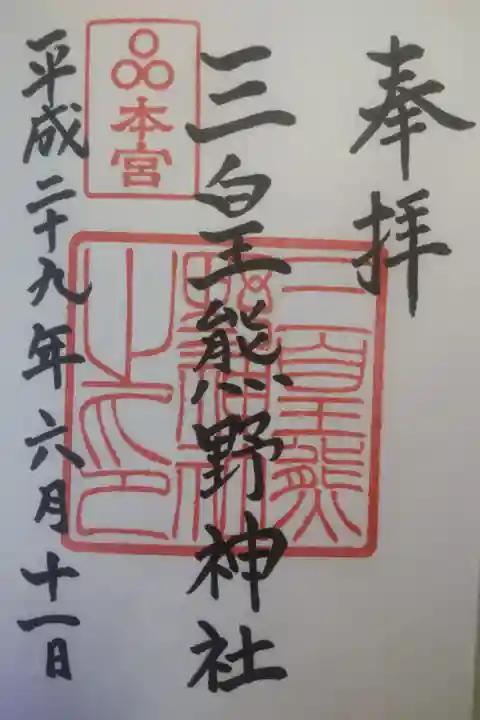 奉拝
三皇熊野神社
本宮
三皇熊
野神社
之印
平成二十九年六月十一日